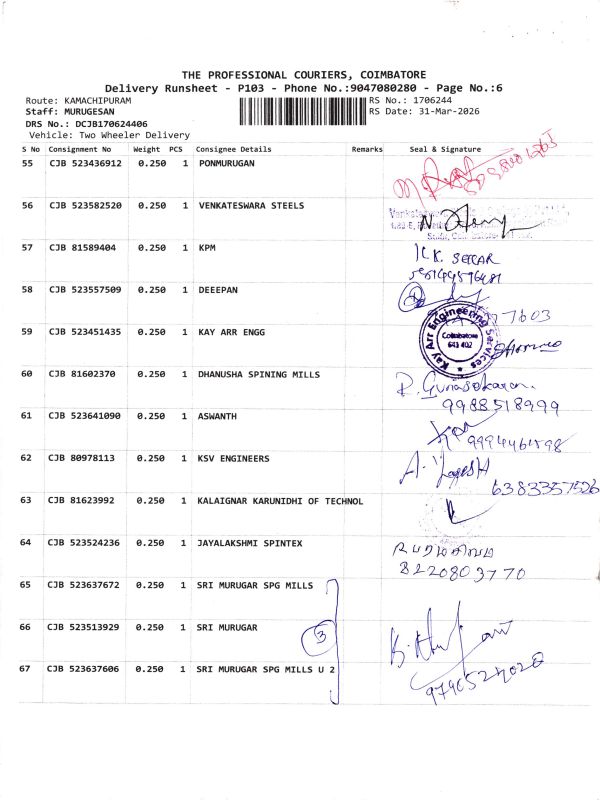 THE PROFESSIONAL COURIERS, COIMBATORE
Delivery Runsheet - P103 - Phone No.:9047080280 - Page No.:6
Route: KAMACHIPURAM RS No.: 1706244
Staff: MURUGESAN RS Date: 31-Mar-2026
DRS No.: DCJB170624406
Vehicle: Two Wheeler Delivery
S No Consignment No Weight PCS Consignee Details Remarks Seal & Signature
55 CJB 523436912 0.250 1 PONMURUGAN
56 CJB 523582520 0.250 1 VENKATESWARA STEELS
57 CJB 81589404 0.250 1 KPM K. SEKAR
58 CJB 523557509 0.250 1 DEEEPAN 7603
59 CJB 523451435 0.250 1 KAY ARR ENGG Kay Arr Engineering Services Coimbatore 641 402
60 CJB 81602370 0.250 1 DHANUSHA SPINING MILLS P. Gunasekaran.
9988518999
61 CJB 523641090 0.250 1 ASWANTH 9994461598
62 CJB 80978113 0.250 1 KSV ENGINEERS A. Yogesh
6383357526
63 CJB 81623992 0.250 1 KALAIGNAR KARUNIDHI OF TECHNOL
64 CJB 523524236 0.250 1 JAYALAKSHMI SPINTEX
8220803770
65 CJB 523637672 0.250 1 SRI MURUGAR SPG MILLS
66 CJB 523513929 0.250 1 SRI MURUGAR 3
67 CJB 523637606 0.250 1 SRI MURUGAR SPG MILLS U 2